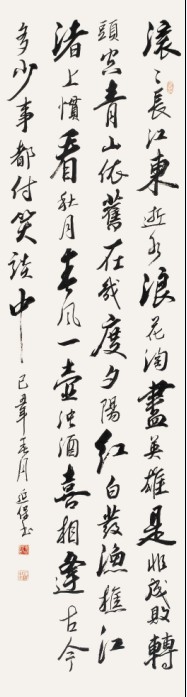 滚〻長江東逝水浪花淘盡英雄是非成敗轉
頭空青山依舊在幾度夕陽红白發漁樵江
渚上慣看秋月春风一壺浊酒喜相逢古今
多少事都付笑談中
己